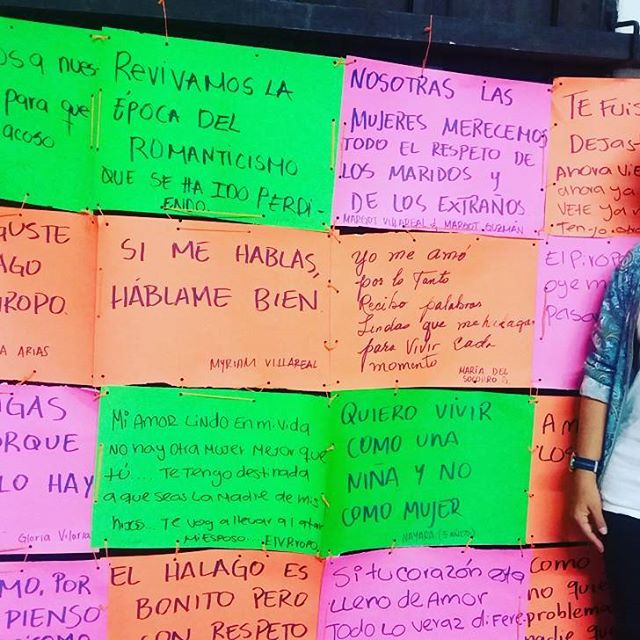 para que
acoso
REVIVAMOS LA
ÉPOCA DEL
ROMANTICISMO
QUE SE HA IDO PERDI-
ENDO.
NOSOTRAS LAS
MUJERES MERECEMOS
TODO EL RESPETO DE
LOS MARIDOS Y
DE LOS EXTRAÑOS
MARGOT VILLAREAL Y MARGOT GUZMÁN
TE FUIS
DEJAS
Ahora vie
ahora ya
vete ya
GUSTE
AGO
ROPO.
A ARIAS
SI ME HABLAS,
HÁBLAME BIEN
MYRIAM VILLAREAL
Yo me amó
por lo Tanto
Recibo palabras
Lindas que me hagan
para vivir cada
momento
MARÍA DEL
SOCORRO
El Piropo
oye m
IGAS
ORQUE
LO HAY
Gloria Viloria
MI Amor Lindo En mi Vida
NO hay Otra Mujer Mejor que
tú.... Te Tengo destinada
a que seas La Madre de mis
hijos... Te voy a llevar al altar
MI ESPOSO.
QUIERO VIVIR
COMO UNA
NIÑA Y NO
COMO MUJER
NAYARA (5 AÑOS)
A M
LOS
MO, POR
PIENSO
EL HALAGO ES
BONITO PERO
CON RESPETO
Si tu corazón esta
LLENO de AMOR
TODO LO VERAZ diFere
como
no quie
problema
nadie que